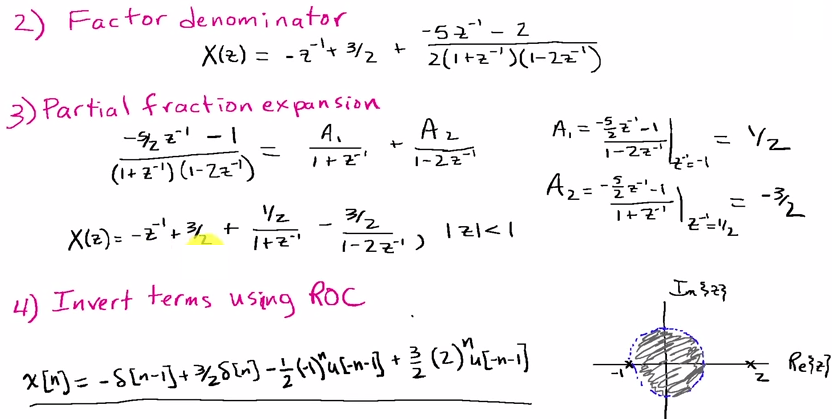 2) Factor denominator
X(z) = -z⁻¹ + 3/2 + (-5z⁻¹ - 2) / (2(1+z⁻¹)(1-2z⁻¹))
3) Partial fraction expansion
(-5/2 z⁻¹ - 1) / ((1+z⁻¹)(1-2z⁻¹)) = A₁ / (1+z⁻¹) + A₂ / (1-2z⁻¹)
A₁ = (-5/2 z⁻¹ - 1) / (1-2z⁻¹) |z⁻¹=-1 = 1/2
A₂ = (-5/2 z⁻¹ - 1) / (1+z⁻¹) |z⁻¹=1/2 = -3/2
X(z) = -z⁻¹ + 3/2 + (1/2) / (1+z⁻¹) - (3/2) / (1-2z⁻¹), |z| < 1
4) Invert terms using ROC
x[n] = -δ[n-1] + 3/2 δ[n] - 1/2 (-1)ⁿ u[-n-1] + 3/2 (2)ⁿ u[-n-1]
Im{z}
-1
2
Re{z}